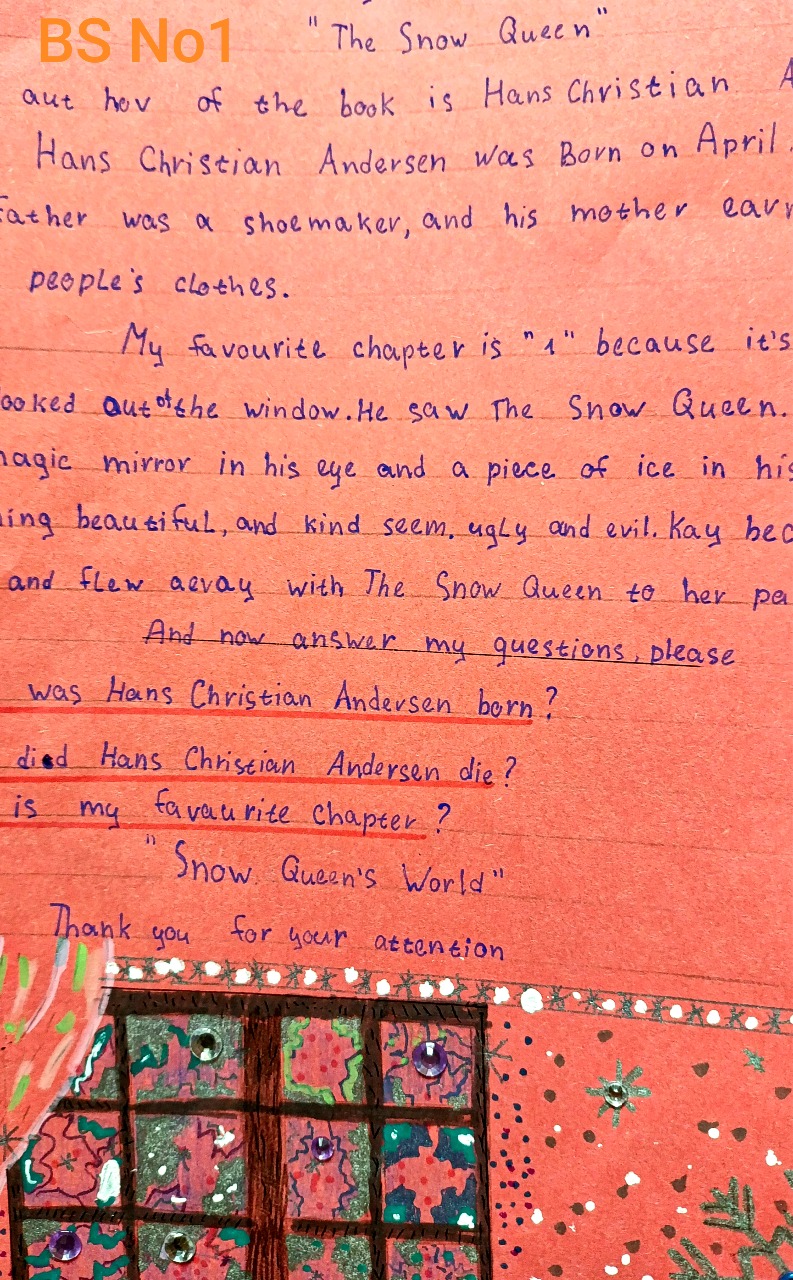 BS No1
"The Snow Queen"
aut hov of the book is Hans Christian A
Hans Christian Andersen was Born on April
Father was a shoemaker, and his mother earn
people's clothes.
My favourite chapter is "1" because it's
ooked out of the window. He saw The Snow Queen.
magic mirror in his eye and a piece of ice in his
ing beautiful, and kind seem, ugly and evil. Kay bec
and flew aevay with The Snow Queen to her pa
And now answer my questions, please
was Hans Christian Andersen born?
died Hans Christian Andersen die?
is my favaurite chapter?
"Snow Queen's World"
Thank you for your attention